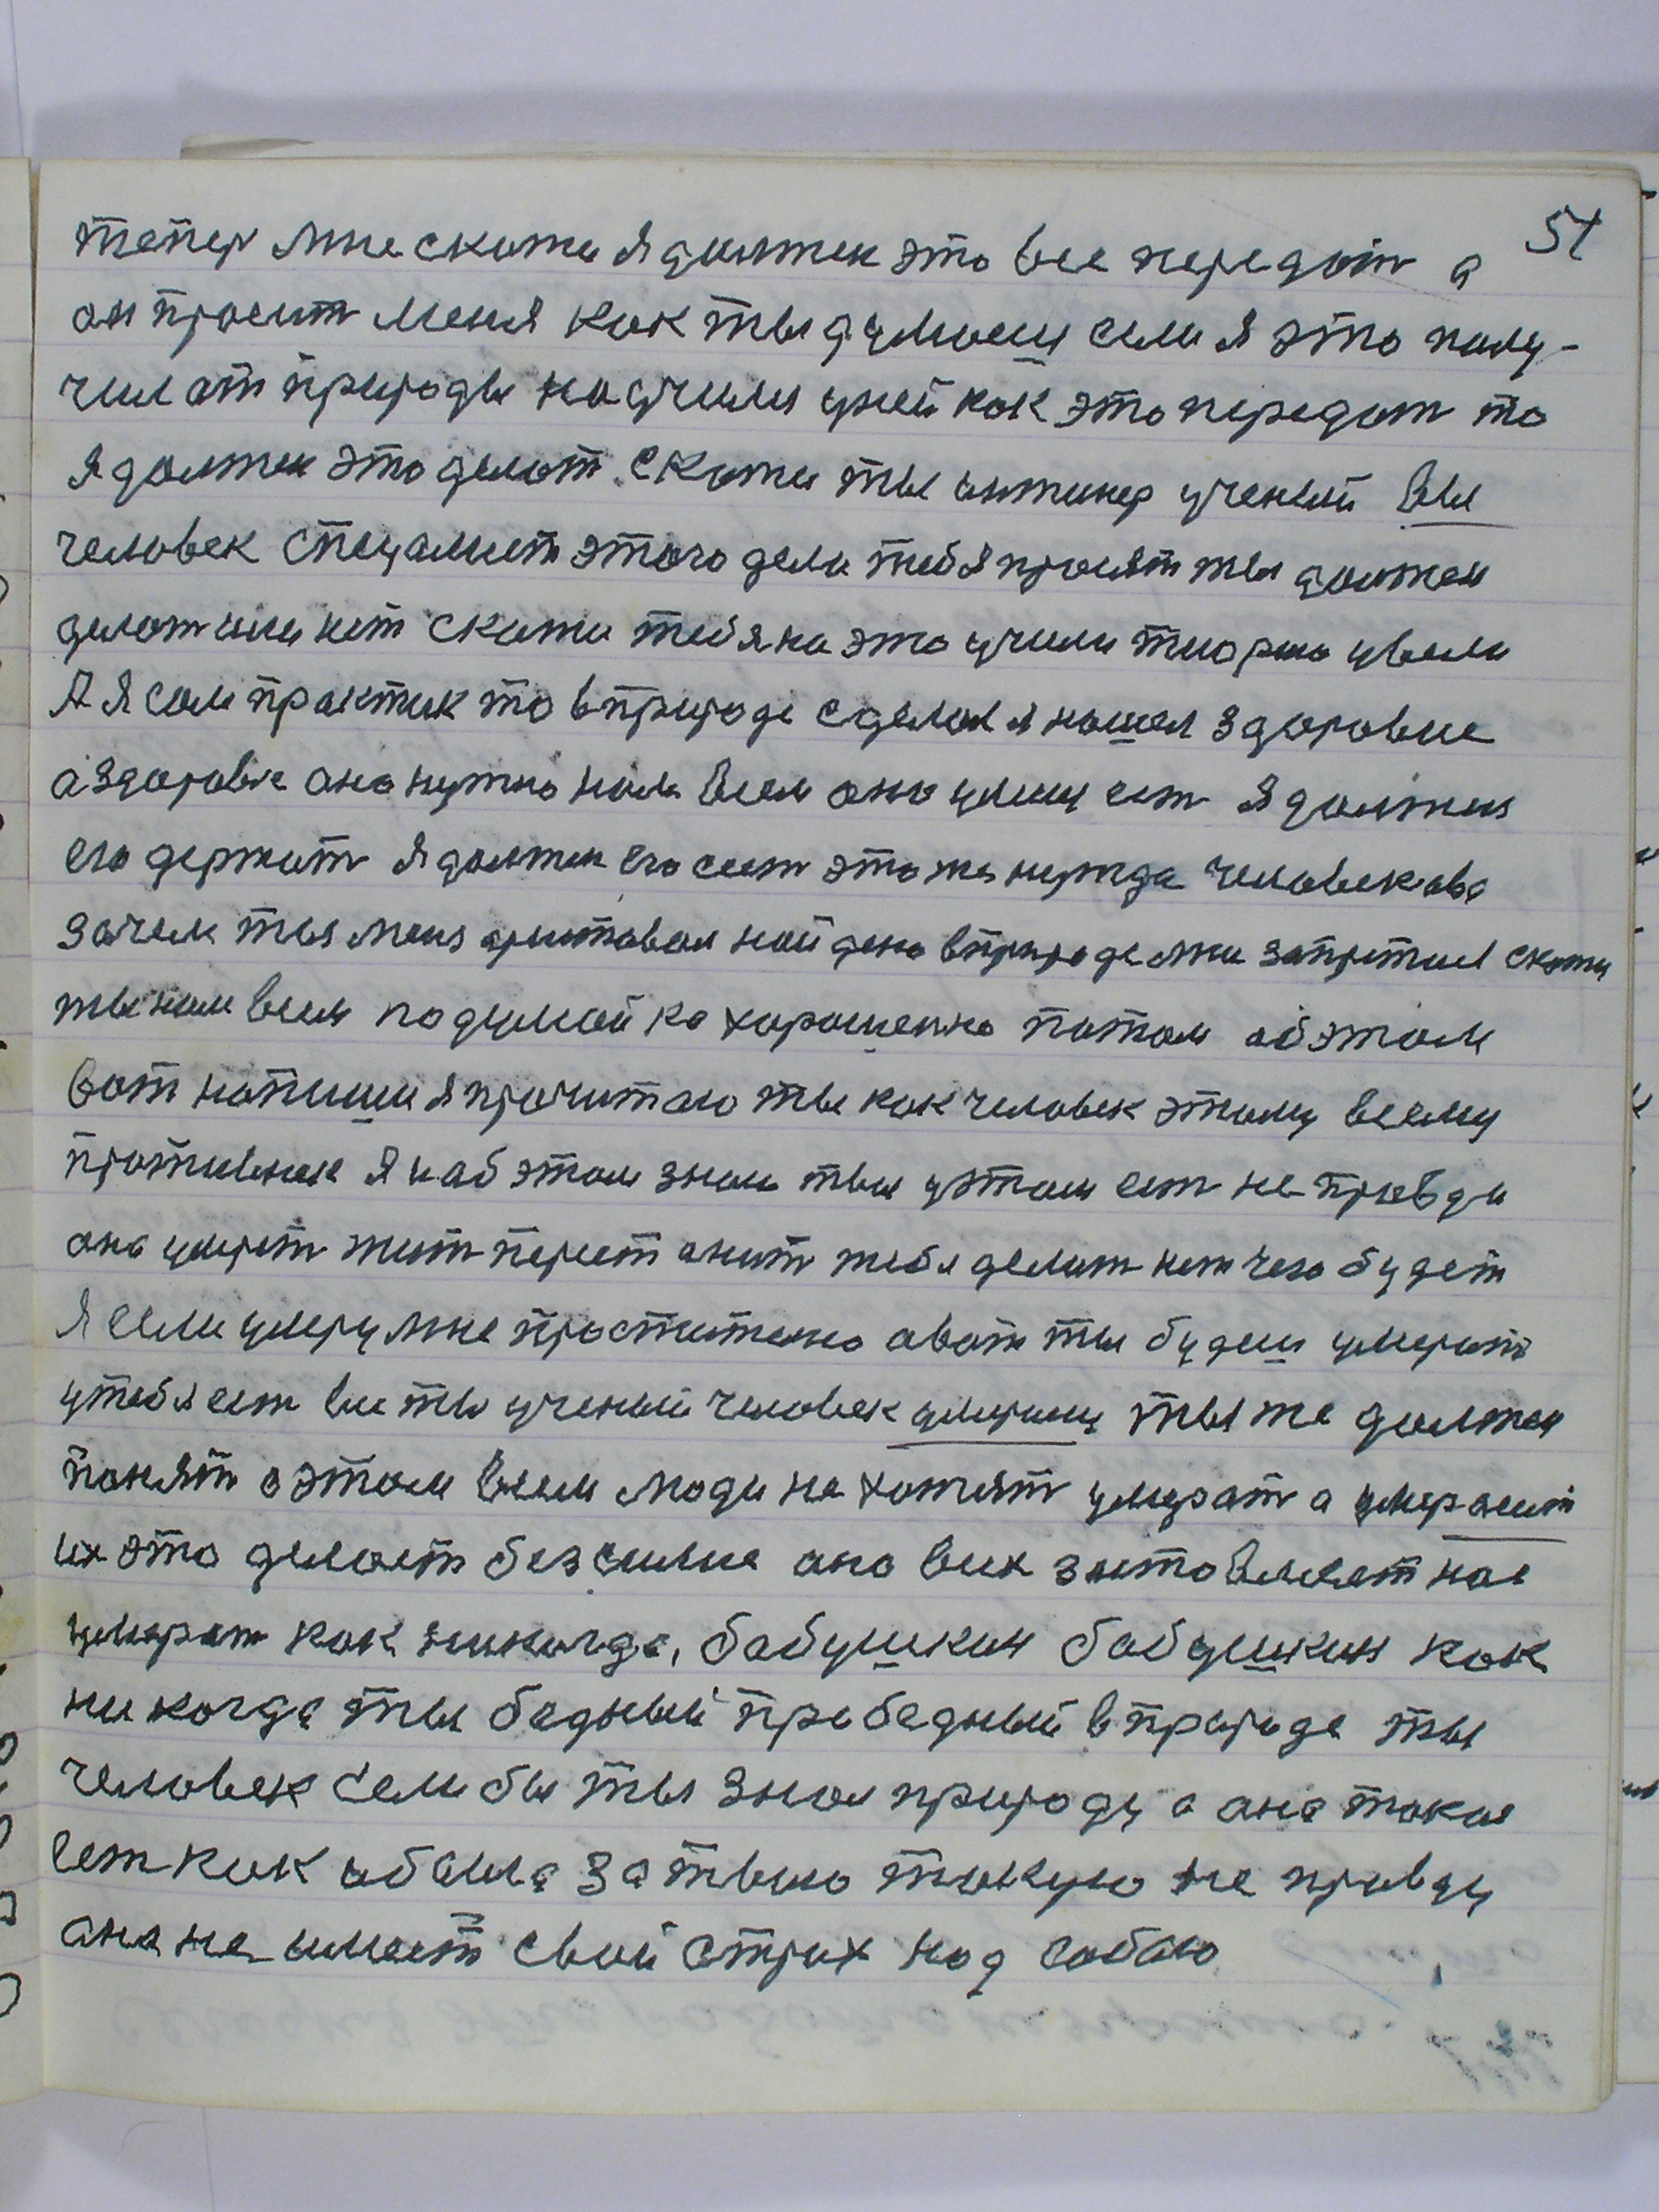 51
тепер мне скажи я должен это все передат а
он просит меня как ты думаеш если я это полу-
чил от природы научился у ней как это передат то
я должен это делат. Скажи ты инжинер ученый вы
человек спецалист этого дела тебя просят ты должен
делат или нет скажи тебя на это учили тиорию увели
А я сам практик то в природе сделал я нашел здоровие
а здоровие оно нужно нам всем оно у мене ест я должен
его держат я должен его сеят это же нужда человекова
зачем ты меня арштовал найдено в природе мне запретил скажи
ты нам всем подумай ка харошенко патом об этом
вот напиши я прочитаю ты как человек этому всему
противник я и об этом знаю ты у этом ест не правди
она умрет жит перестанит тебя делит нет чего будет
Я если умеру мне простително а вот ты будеш умерат
у тебя ест все ты ученый человек умриш ты же должен
понят о этом всем люди не хотят умират а умерают
их это делает безсилие оно в них зготовляет нас
умерат как никогда, бабушкин бабушкин как
никогда ты бедный пребедный в природе ты
человек если бы ты знал природу а она такая
ест как и была за твою такую не правду
она не имеет свой страх над собою